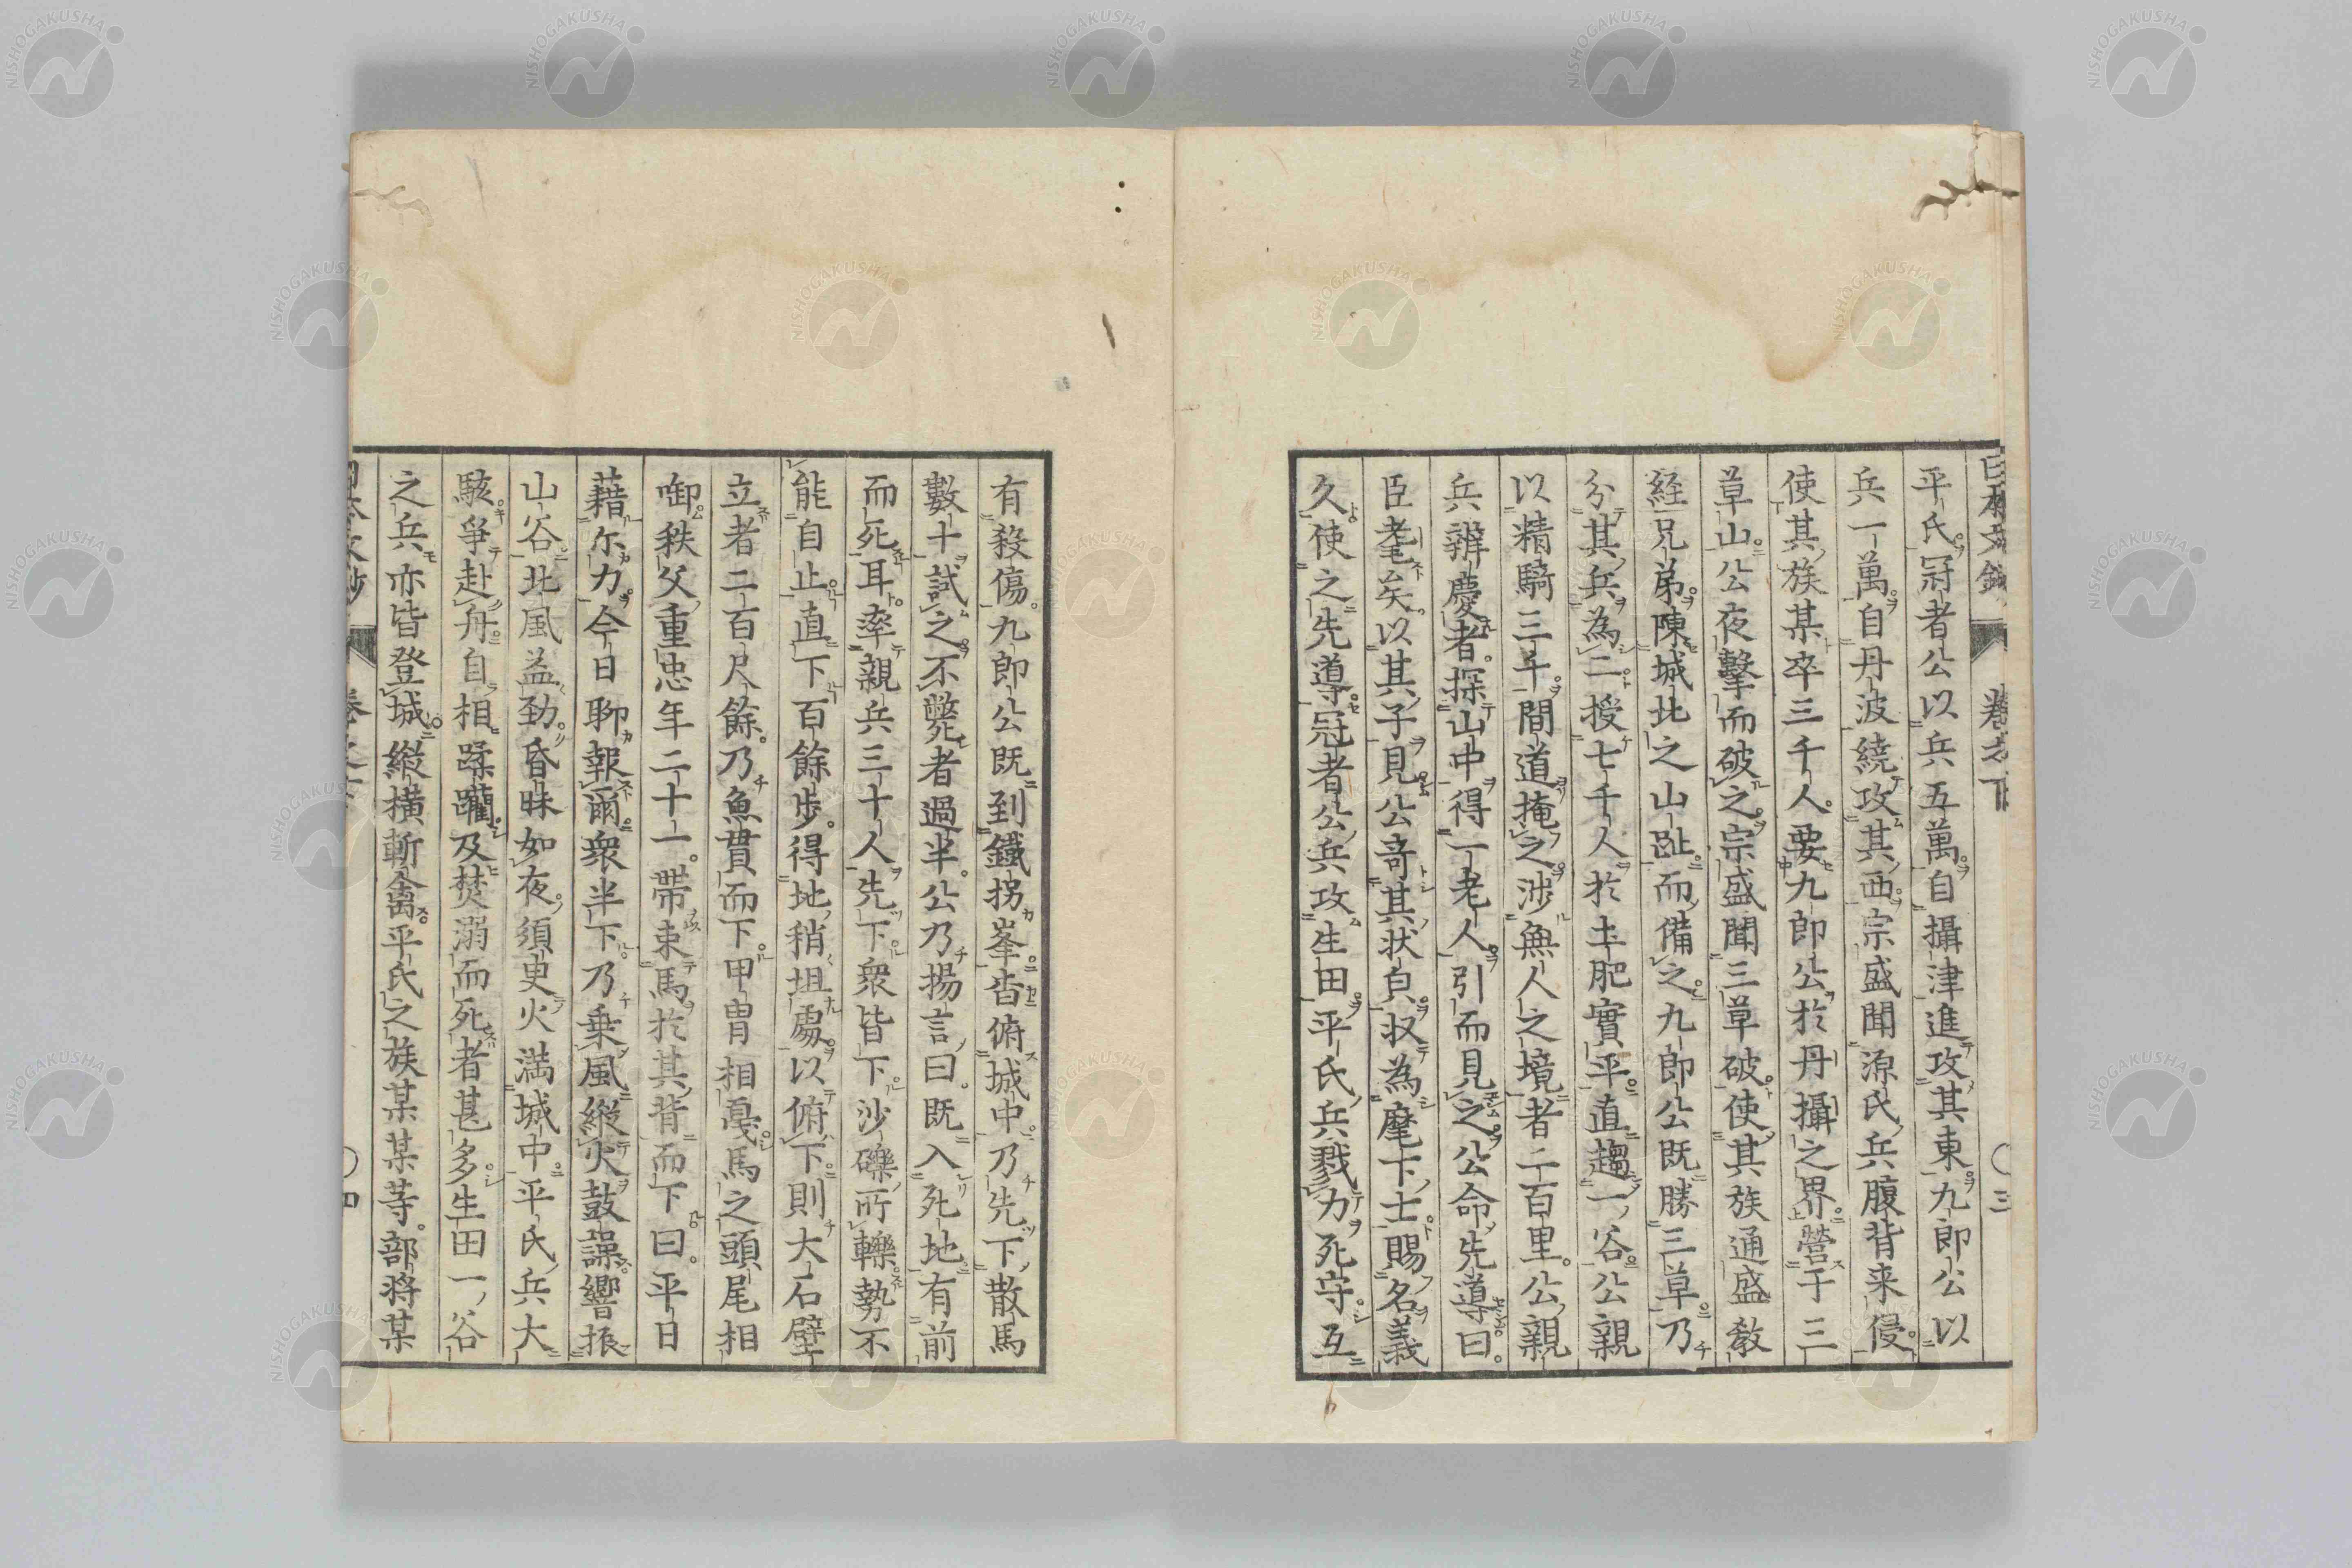 平氏冠者公以兵五萬自攝津進攻其東九郎公以
兵一萬自丹波繞攻其西宗盛聞源氏兵腹背来侵
使其族某卒三千人要九郎公於丹攝之界營于三
草山公夜擊而破之宗盛聞三草破使其族通盛教
経兄弟陳城北之山趾而備之九郎公既勝三草乃
分其兵為二授七千人於土肥實平直趨一谷公親
以精騎三千間道掩之渉無人之境者二百里公親
兵辨慶者探山中得一老人引而見之公命先導曰
臣耄矣以其子見公奇其状皃収為麾下士賜名義
久使之先導冠者公兵攻生田平氏兵戮力死守互
有殺傷九郎公既到鐵拐峯杳俯城中乃先下散馬
數十試之不斃者過半公乃揚言曰既入死地有前
而死耳率親兵三十人先下衆皆下沙礫所轢勢不
能自止直下百餘歩得地稍坦處以俯下則大石壁
立者二百尺餘乃魚貫而下甲冑相戞馬之頭尾相
啣秩父重忠年二十一帶束馬於其背而下曰平日
藉尓力今日聊報爾衆半下乃乗風縱火鼓譟響振
山谷北風益勁昏昧如夜須臾火満城中平氏兵大
駭爭赴舟自相蹂躪及焚溺而死者甚多生田一谷
之兵亦皆登城縱横斬禽平氏之族某某某䓁部将某
NISHOGAKUSHA